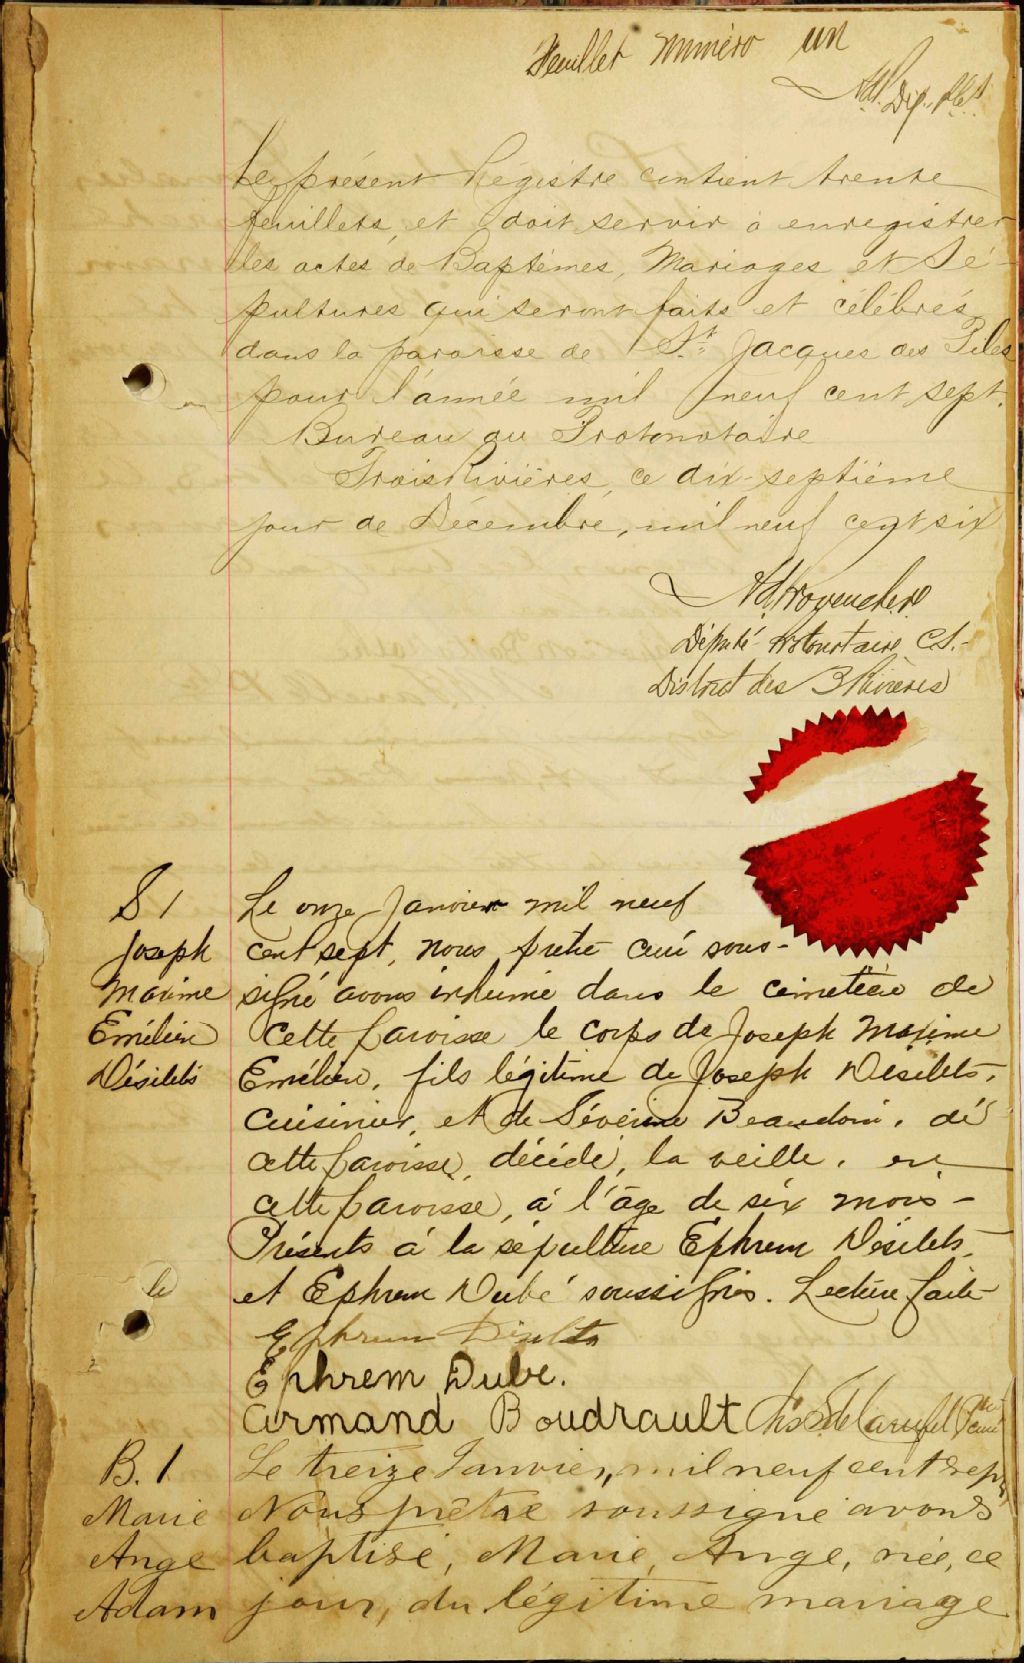 Feuillet numéro un
Dép. Pt.
Le présent Régistre contient trente
feuillets, et doit servir à enregistrer
les actes de Baptêmes, Mariages et Sé-
pultures qui seront faits et célébrés
dans la paroisse de St. Jacques des Piles
pour l'année mil neuf cent sept.
Bureau du Protonotaire
Trois Rivières, ce dix-septième
jour de Décembre, mil neuf cent six
Ad. Provencher
Député-Protonotaire C.S.
District des 3 Rivières
S 1
Joseph
Maxime
Emélien
Désilets
Le onze Janvier mil neuf
cent sept, nous, prêtre curé sous-
signé avons inhumé dans le cimetière de
cette paroisse le corps de Joseph Maxime
Emélien, fils légitime de Joseph Désilets,
cuisinier, et de Séverine Beaudoin, de
cette paroisse, décédé, la veille, en
cette paroisse, à l'âge de six mois -
Présents à la sépulture Ephrem Désilets
et Ephrem Dubé soussignés. Lecture faite
Ephrem Désilets
Ephrem Dube.
Armand Boudrault
B. 1
Marie
Ange
Adam
Le treize Janvier, mil neuf cent sept,
Nous prêtre soussigné avons
baptisé, Marie, Ange, née, ce
jour, du légitime mariage